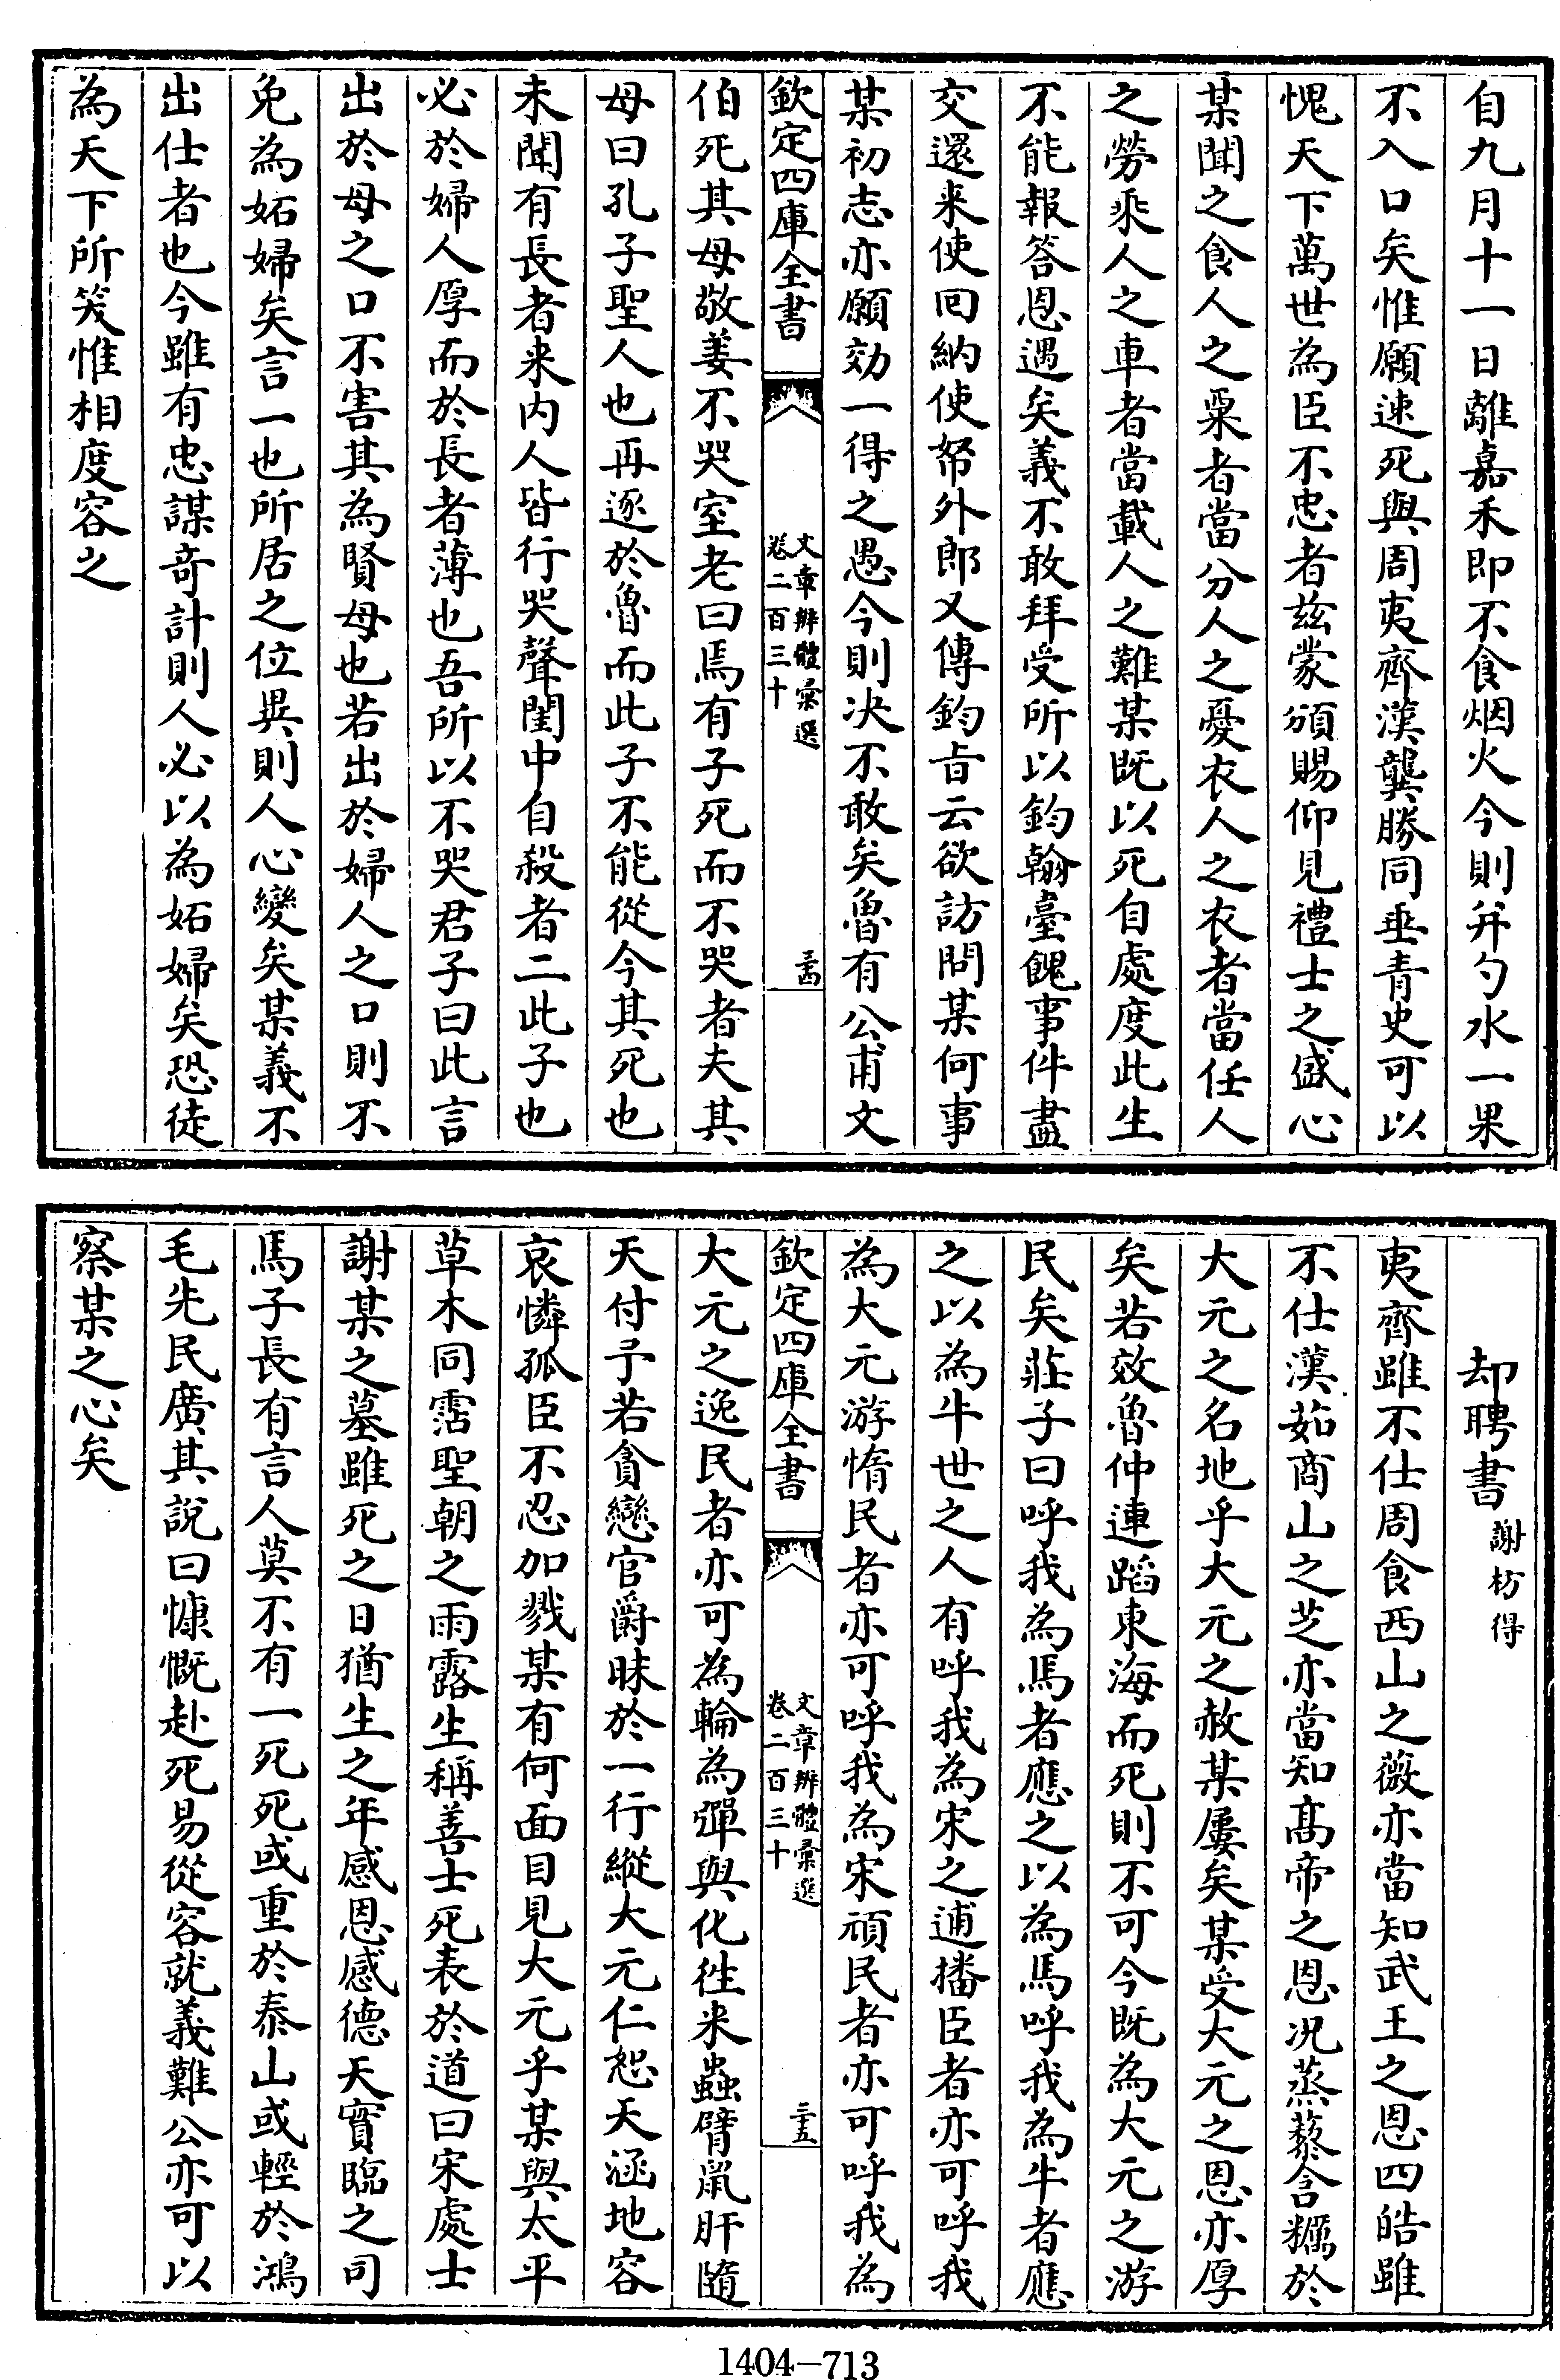 自九月十一日離嘉禾即不食烟火今則并勺水一果
不入口矣惟願速死與周夷齊漢龔勝同垂青史可以
愧天下萬世為臣不忠者兹蒙頒賜仰見禮士之盛心
某聞之食人之粟者當分人之憂衣人之衣者當任人
之勞乘人之車者當載人之難某既以死自處度此生
不能報答恩遇矣義不敢拜受所以鈞翰臺餽事件盡
交還来使回納使帑外郎又傳鈞㫖云欲訪問某何事
某初志亦願効一得之愚今則决不敢矣魯有公甫文
欽定四庫全書
文章辨體彙選
卷二百三十
三十四
伯死其母敬姜不哭室老曰焉有子死而不哭者夫其
母曰孔子聖人也再逐於魯而此子不能從今其死也
未聞有長者来内人皆行哭聲閨中自殺者二此子也
必於婦人厚而於長者薄也吾所以不哭君子曰此言
出於母之口不害其為賢母也若出於婦人之口則不
免為妬婦矣言一也所居之位異則人心變矣某義不
出仕者也今雖有忠謀奇計則人必以為妬婦矣恐徒
為天下所笑惟相度容之
却聘書 謝枋得
夷齊雖不仕周食西山之薇亦當知武王之恩四皓雖
不仕漢茹商山之芝亦當知髙帝之恩况蒸藜含糲於
大元之名地乎大元之赦某屢矣某受大元之恩亦厚
矣若效魯仲連蹈東海而死則不可今既為大元之游
民矣莊子曰呼我為馬者應之以為馬呼我為牛者應
之以為牛世之人有呼我為宋之逋播臣者亦可呼我
為大元游惰民者亦可呼我為宋頑民者亦可呼我為
欽定四庫全書
文章辨體彙選
卷二百三十
三十五
大元之逸民者亦可為輪為彈與化徃来蟲臂鼠肝隨
天付予若貪戀官爵昧於一行縱大元仁恕天涵地容
哀憐孤臣不忍加戮某有何面目見大元乎某與太平
草木同霑聖朝之雨露生稱善士死表於道曰宋處士
謝某之墓雖死之日猶生之年感恩感德天寔臨之司
馬子長有言人莫不有一死死或重於泰山或輕於鴻
毛先民廣其說曰慷慨赴死易從容就義難公亦可以
察某之心矣
1404—713